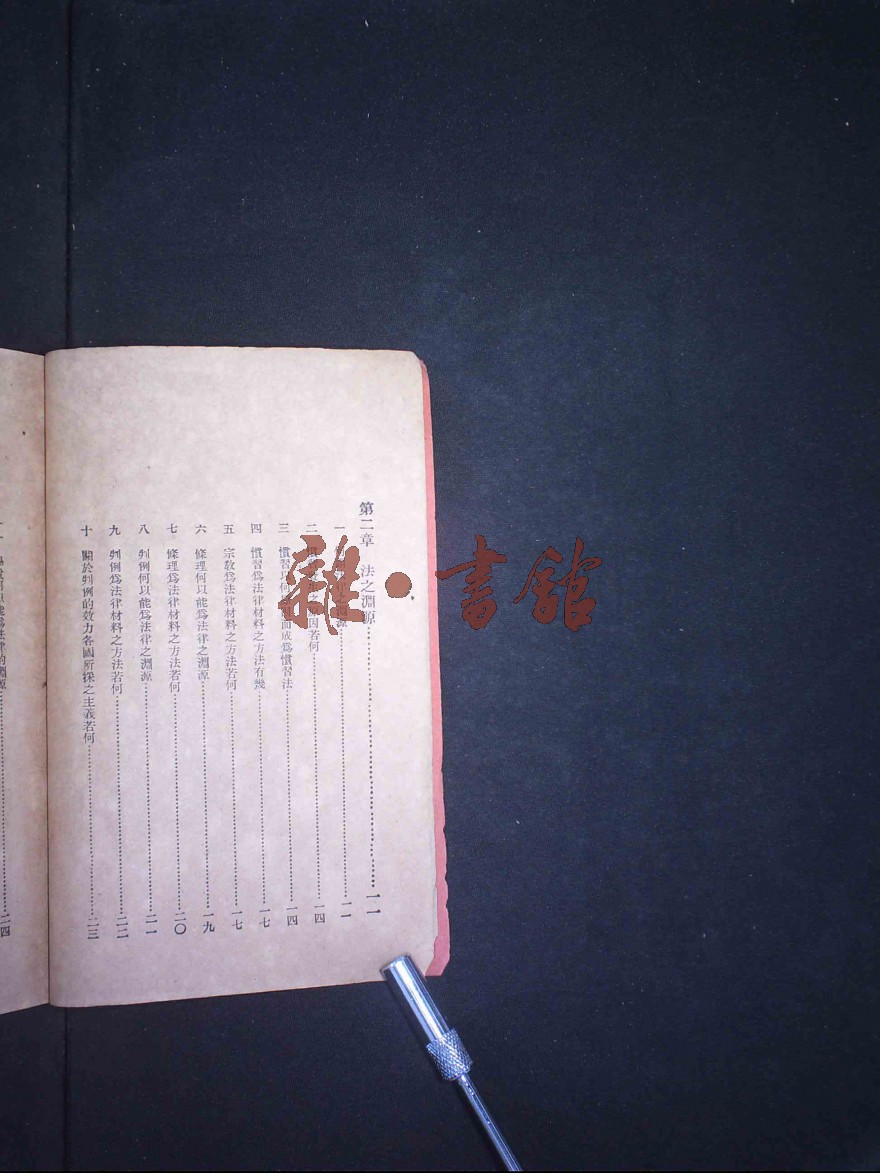 第二章 法之淵源……一一
一 源……一一
二 因若何……一四
三 慣習以何 而成爲慣習法……一四
四 慣習爲法律材料之方法有幾……一七
五 宗敎爲法律材料之方法若何……一七
六 條理何以能爲法律之淵源……一九
七 條理爲法律材料之方法若何……二〇
八 判例何以能爲法律之淵源……二一
九 判例爲法律材料之方法若何……二二
十 關於判例的效力各國所採之主義若何……二三
能爲法律的淵源……二四
雜·書館